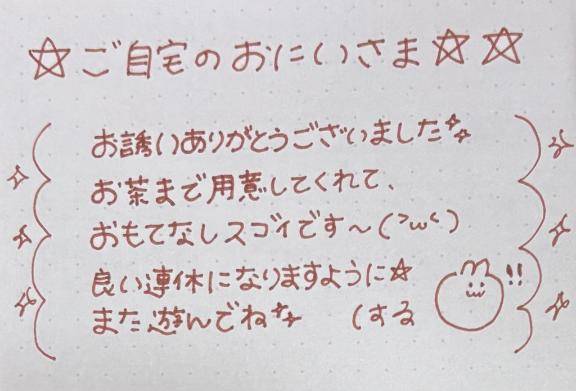 ☆ご自宅のおにいさま☆☆
お誘いありがとうございました✨
お茶まで用意してくれて、
おもてなしスゴイです〜(>ω<)
良い連休になりますように☆
また遊んでね✨ (する !!